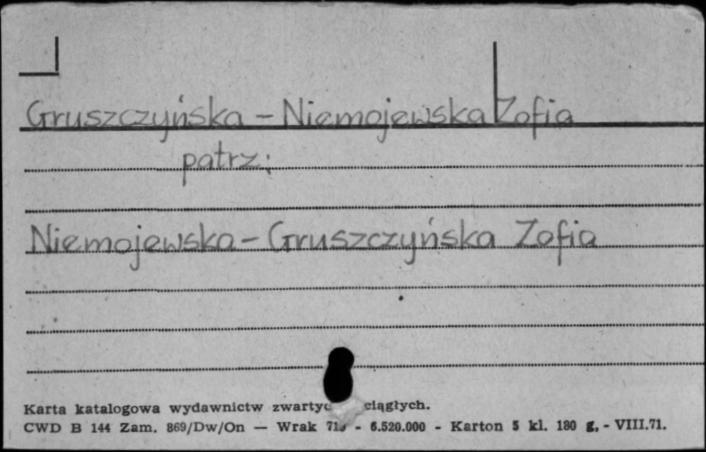 Gruszczyńska - Niemojewska Zofia
patrz:
Niemojewska - Gruszczyńska Zofia
Karta katalogowa wydawnictw ciągłych.
CWD B 144 Zam. 869/Dw/On — Wrak - 6.520.000 - Karton 5 kl. 180 g. - VIII.71.